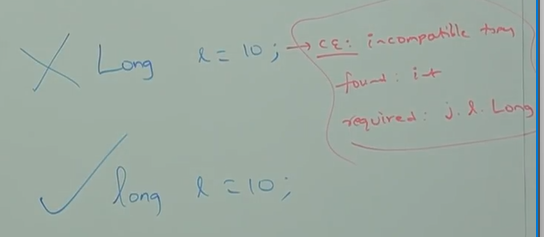 Long l = 10; → CE: incompatible types
found: int
required: j.l.Long
long l = 10;